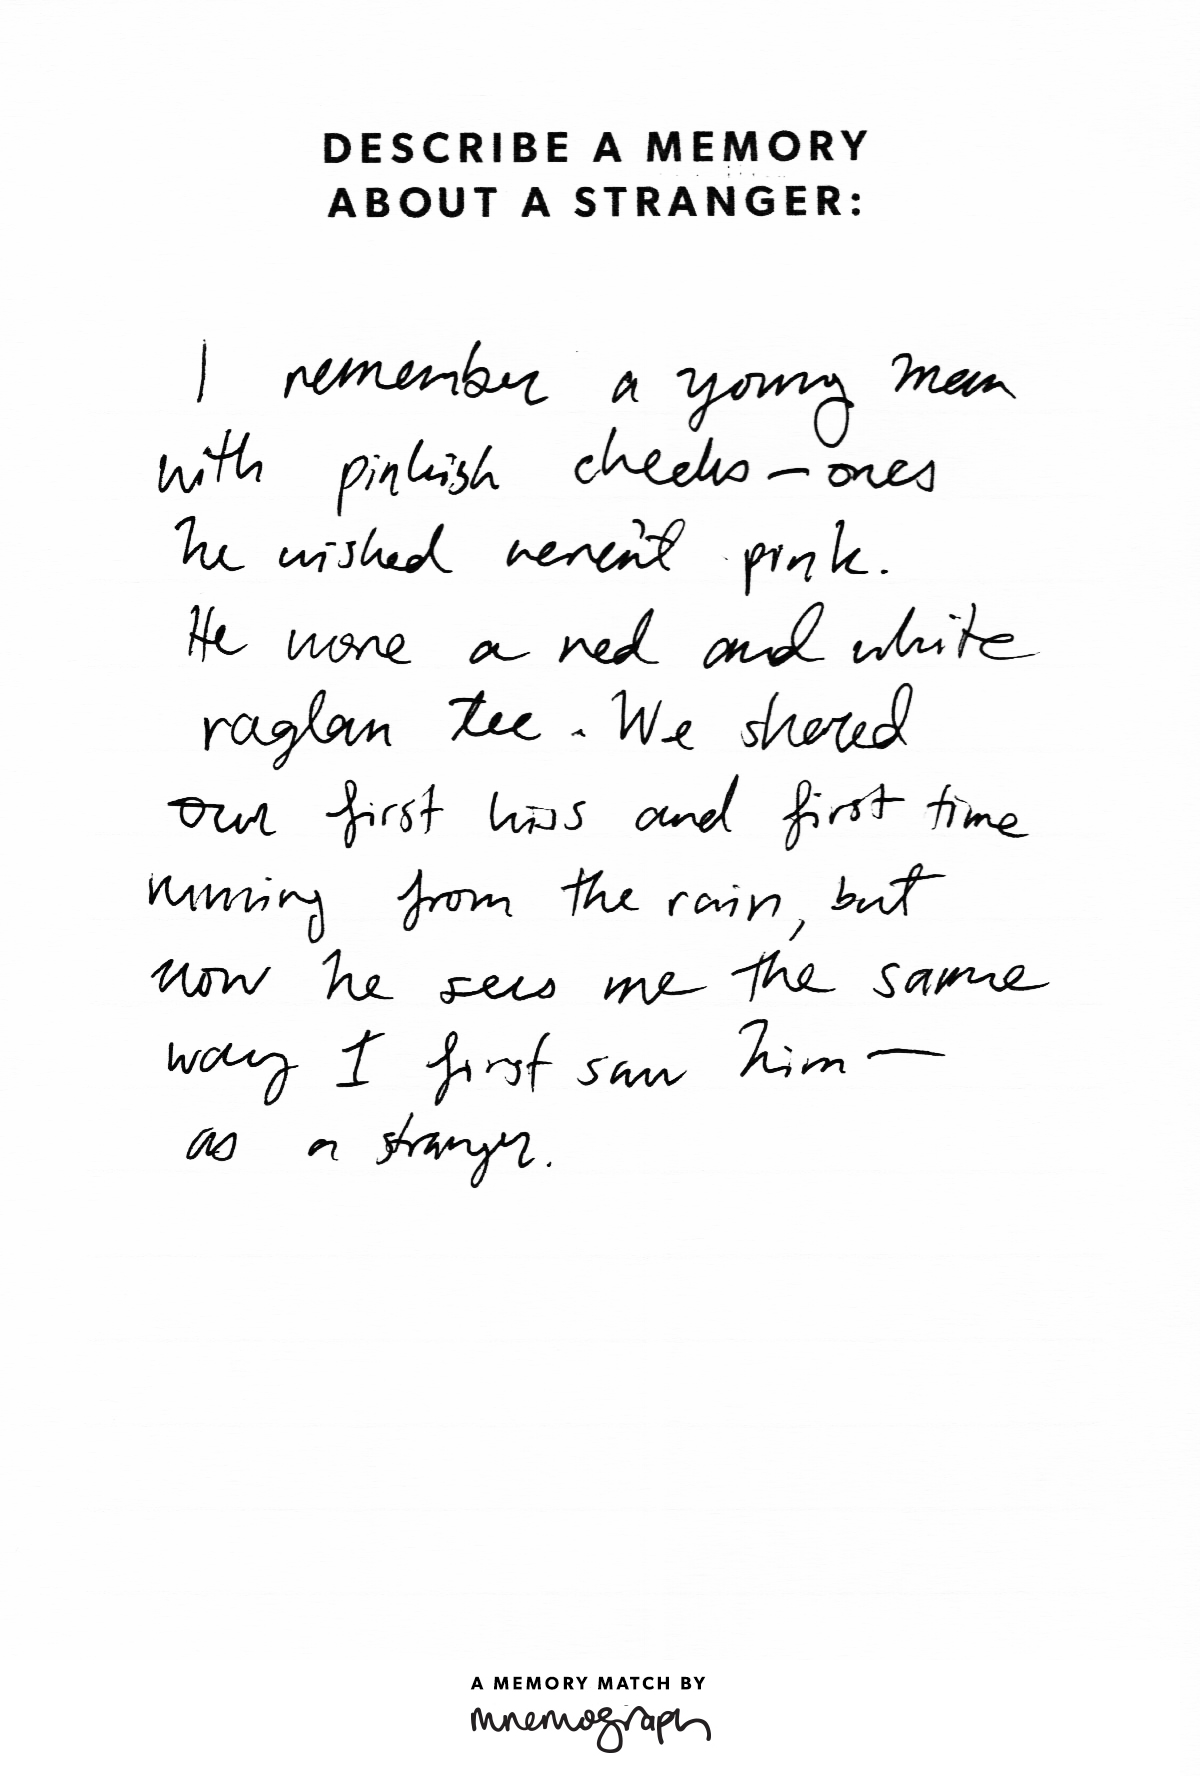 DESCRIBE A MEMORY
ABOUT A STRANGER:
I remember a young man
with pinkish cheeks – ones
he wished weren't pink.
He wore a red and white
raglan tee. We shared
our first kiss and first time
running from the rain, but
now he sees me the same
way I first saw him —
as a stranger.
A MEMORY MATCH BY
mnemograph